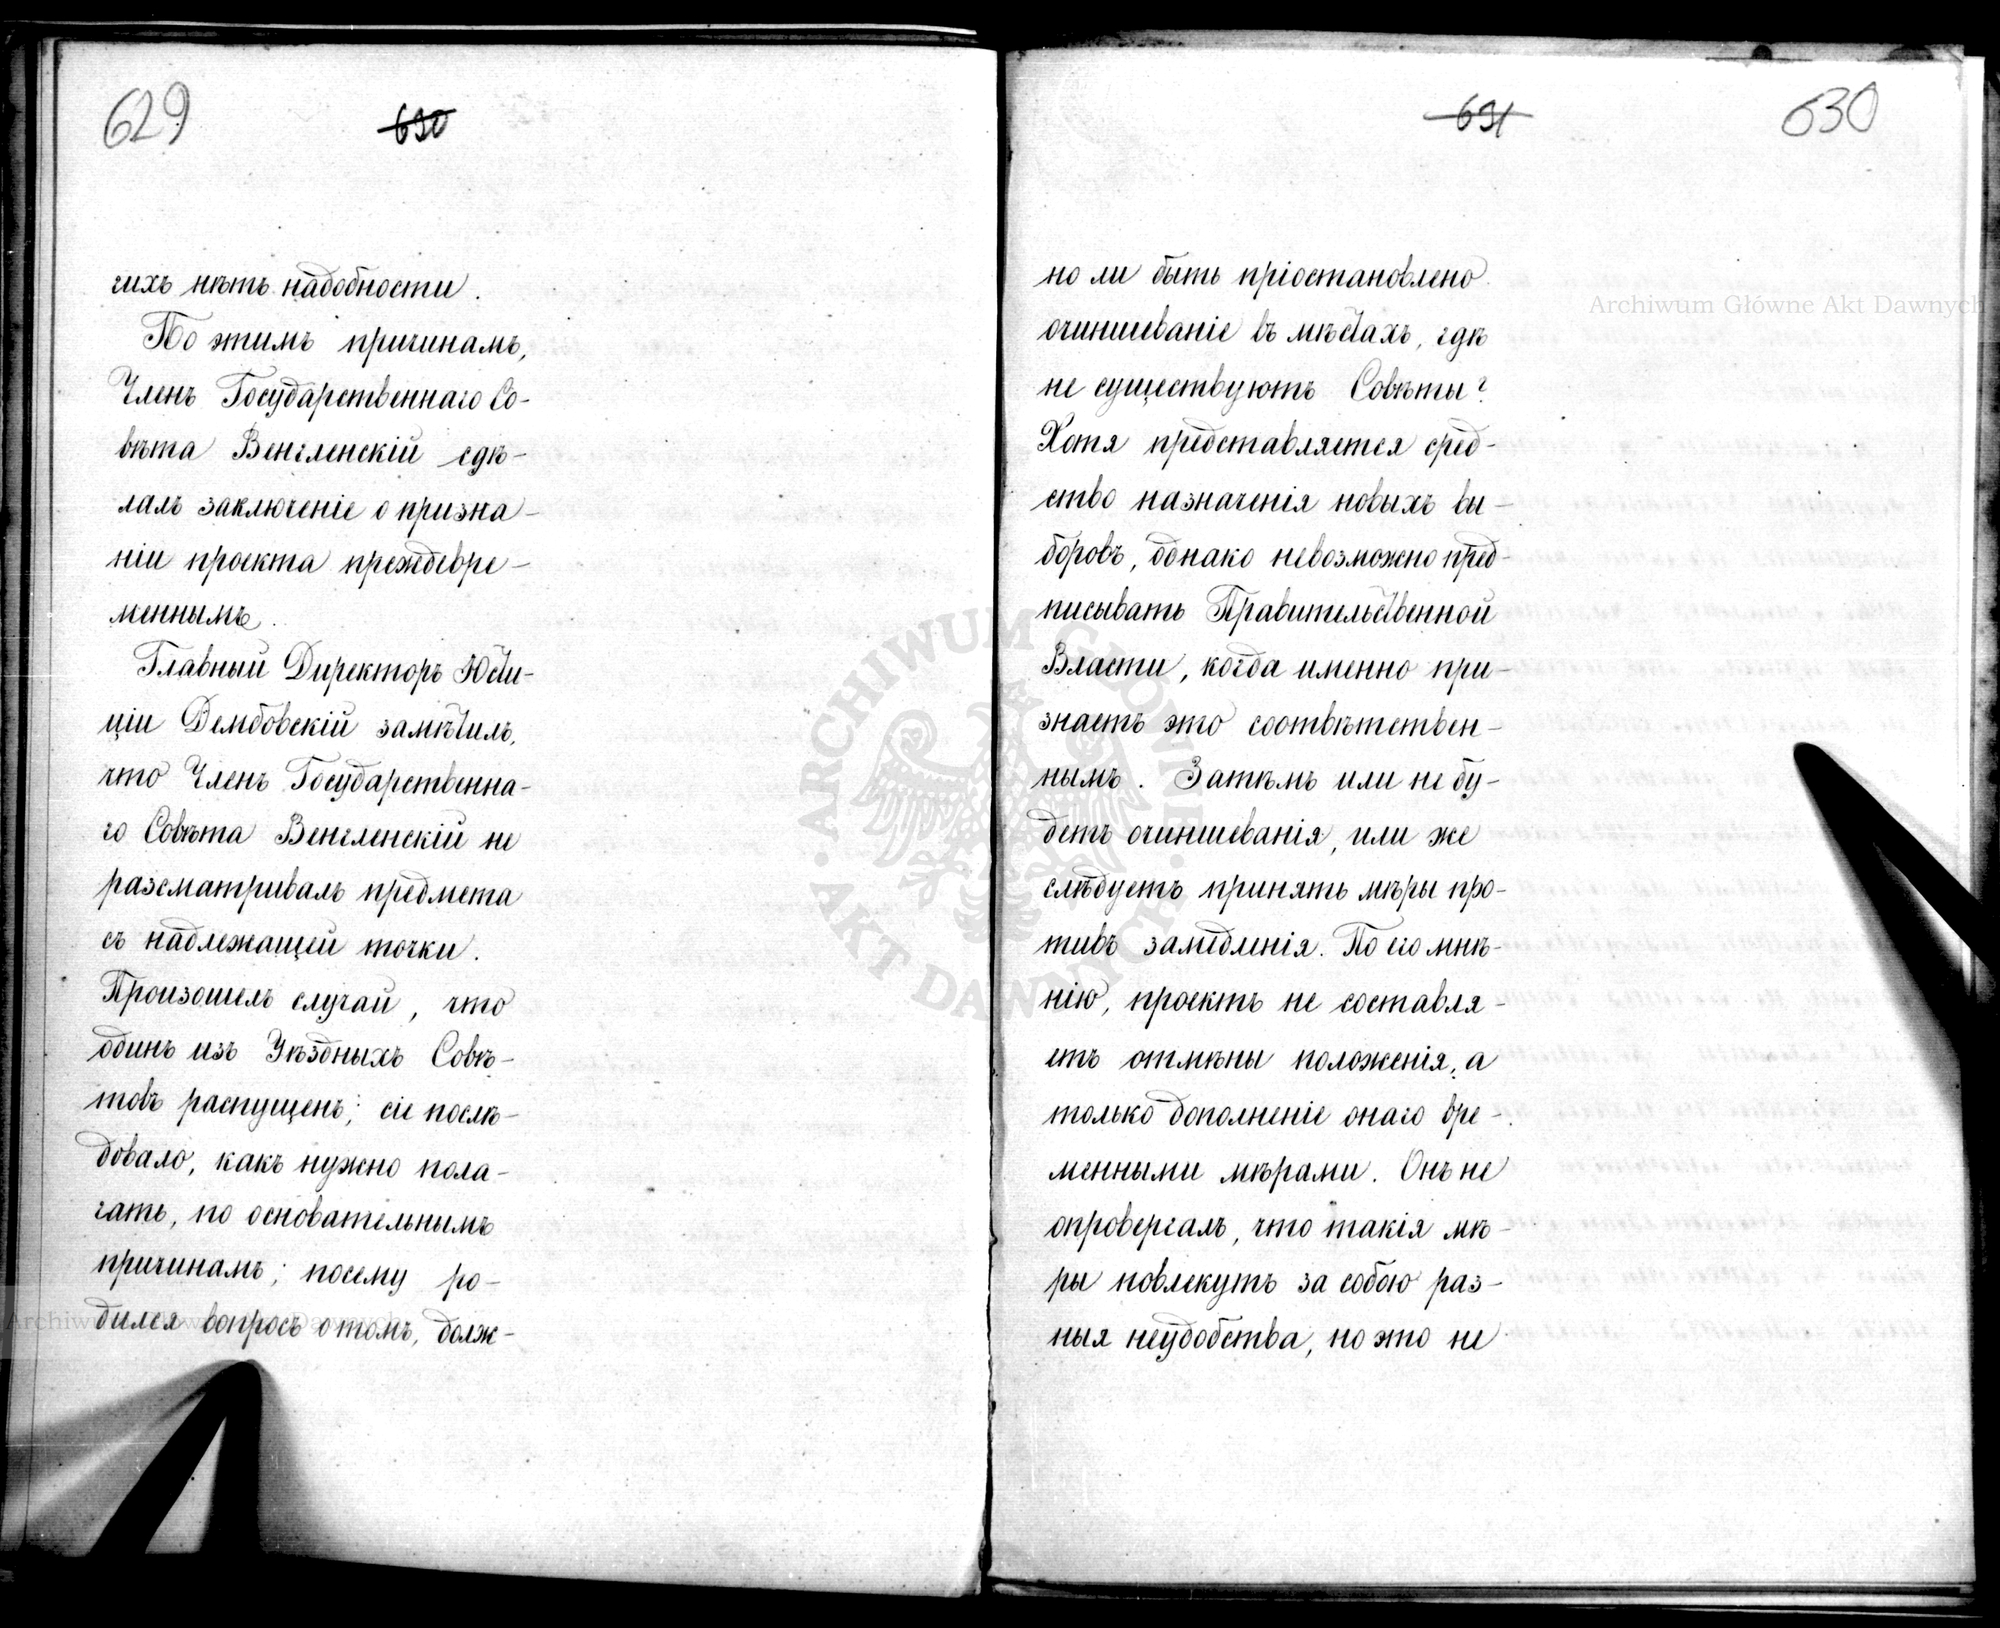 629
630
гихъ нѣтъ надобности.
По этимъ причинамъ,
Членъ Государственнаго Со-
вѣта Венгленскій сдѣ-
лалъ заключеніе о призна-
ніи проекта преждевре-
меннымъ.
Главный Директоръ Юсти-
ціи Дембовскій замѣтилъ,
что Членъ Государственна-
го Совѣта Венгленскій не
разсматривалъ предмета
съ надлежащей точки.
Произошелъ случай, что
одинъ изъ Уѣздныхъ Совѣ-
товъ распущенъ; сіе послѣ-
довало, какъ нужно пола-
гать, по основательнымъ
причинамъ; посему ро-
дился вопросъ о томъ, долж-
631
630
но ли быть пріостановлено
очиншеваніе въ мѣстахъ, гдѣ
не существуютъ Совѣты?
Хотя представляется сред-
ство назначенія новыхъ вы-
боровъ, однако невозможно пред-
писывать Правительственной
Власти, когда именно при-
знаетъ это соотвѣтствен-
нымъ. Затѣмъ или не бу-
детъ очиншеванія, или же
слѣдуетъ принять мѣры про-
тивъ замедленія. По его мнѣ-
нію, проектъ не составля-
етъ отмѣны положенія, а
только дополненіе онаго вре-
менными мѣрами. Онъ не
опровергалъ, что такія мѣ-
ры повлекутъ за собою раз-
ныя неудобства, но это не
Archiwum Główne Akt Dawnych
ARCHIWUM GŁÓWNE AKT DAWNYCH
Archiwum Główne Akt Dawnych